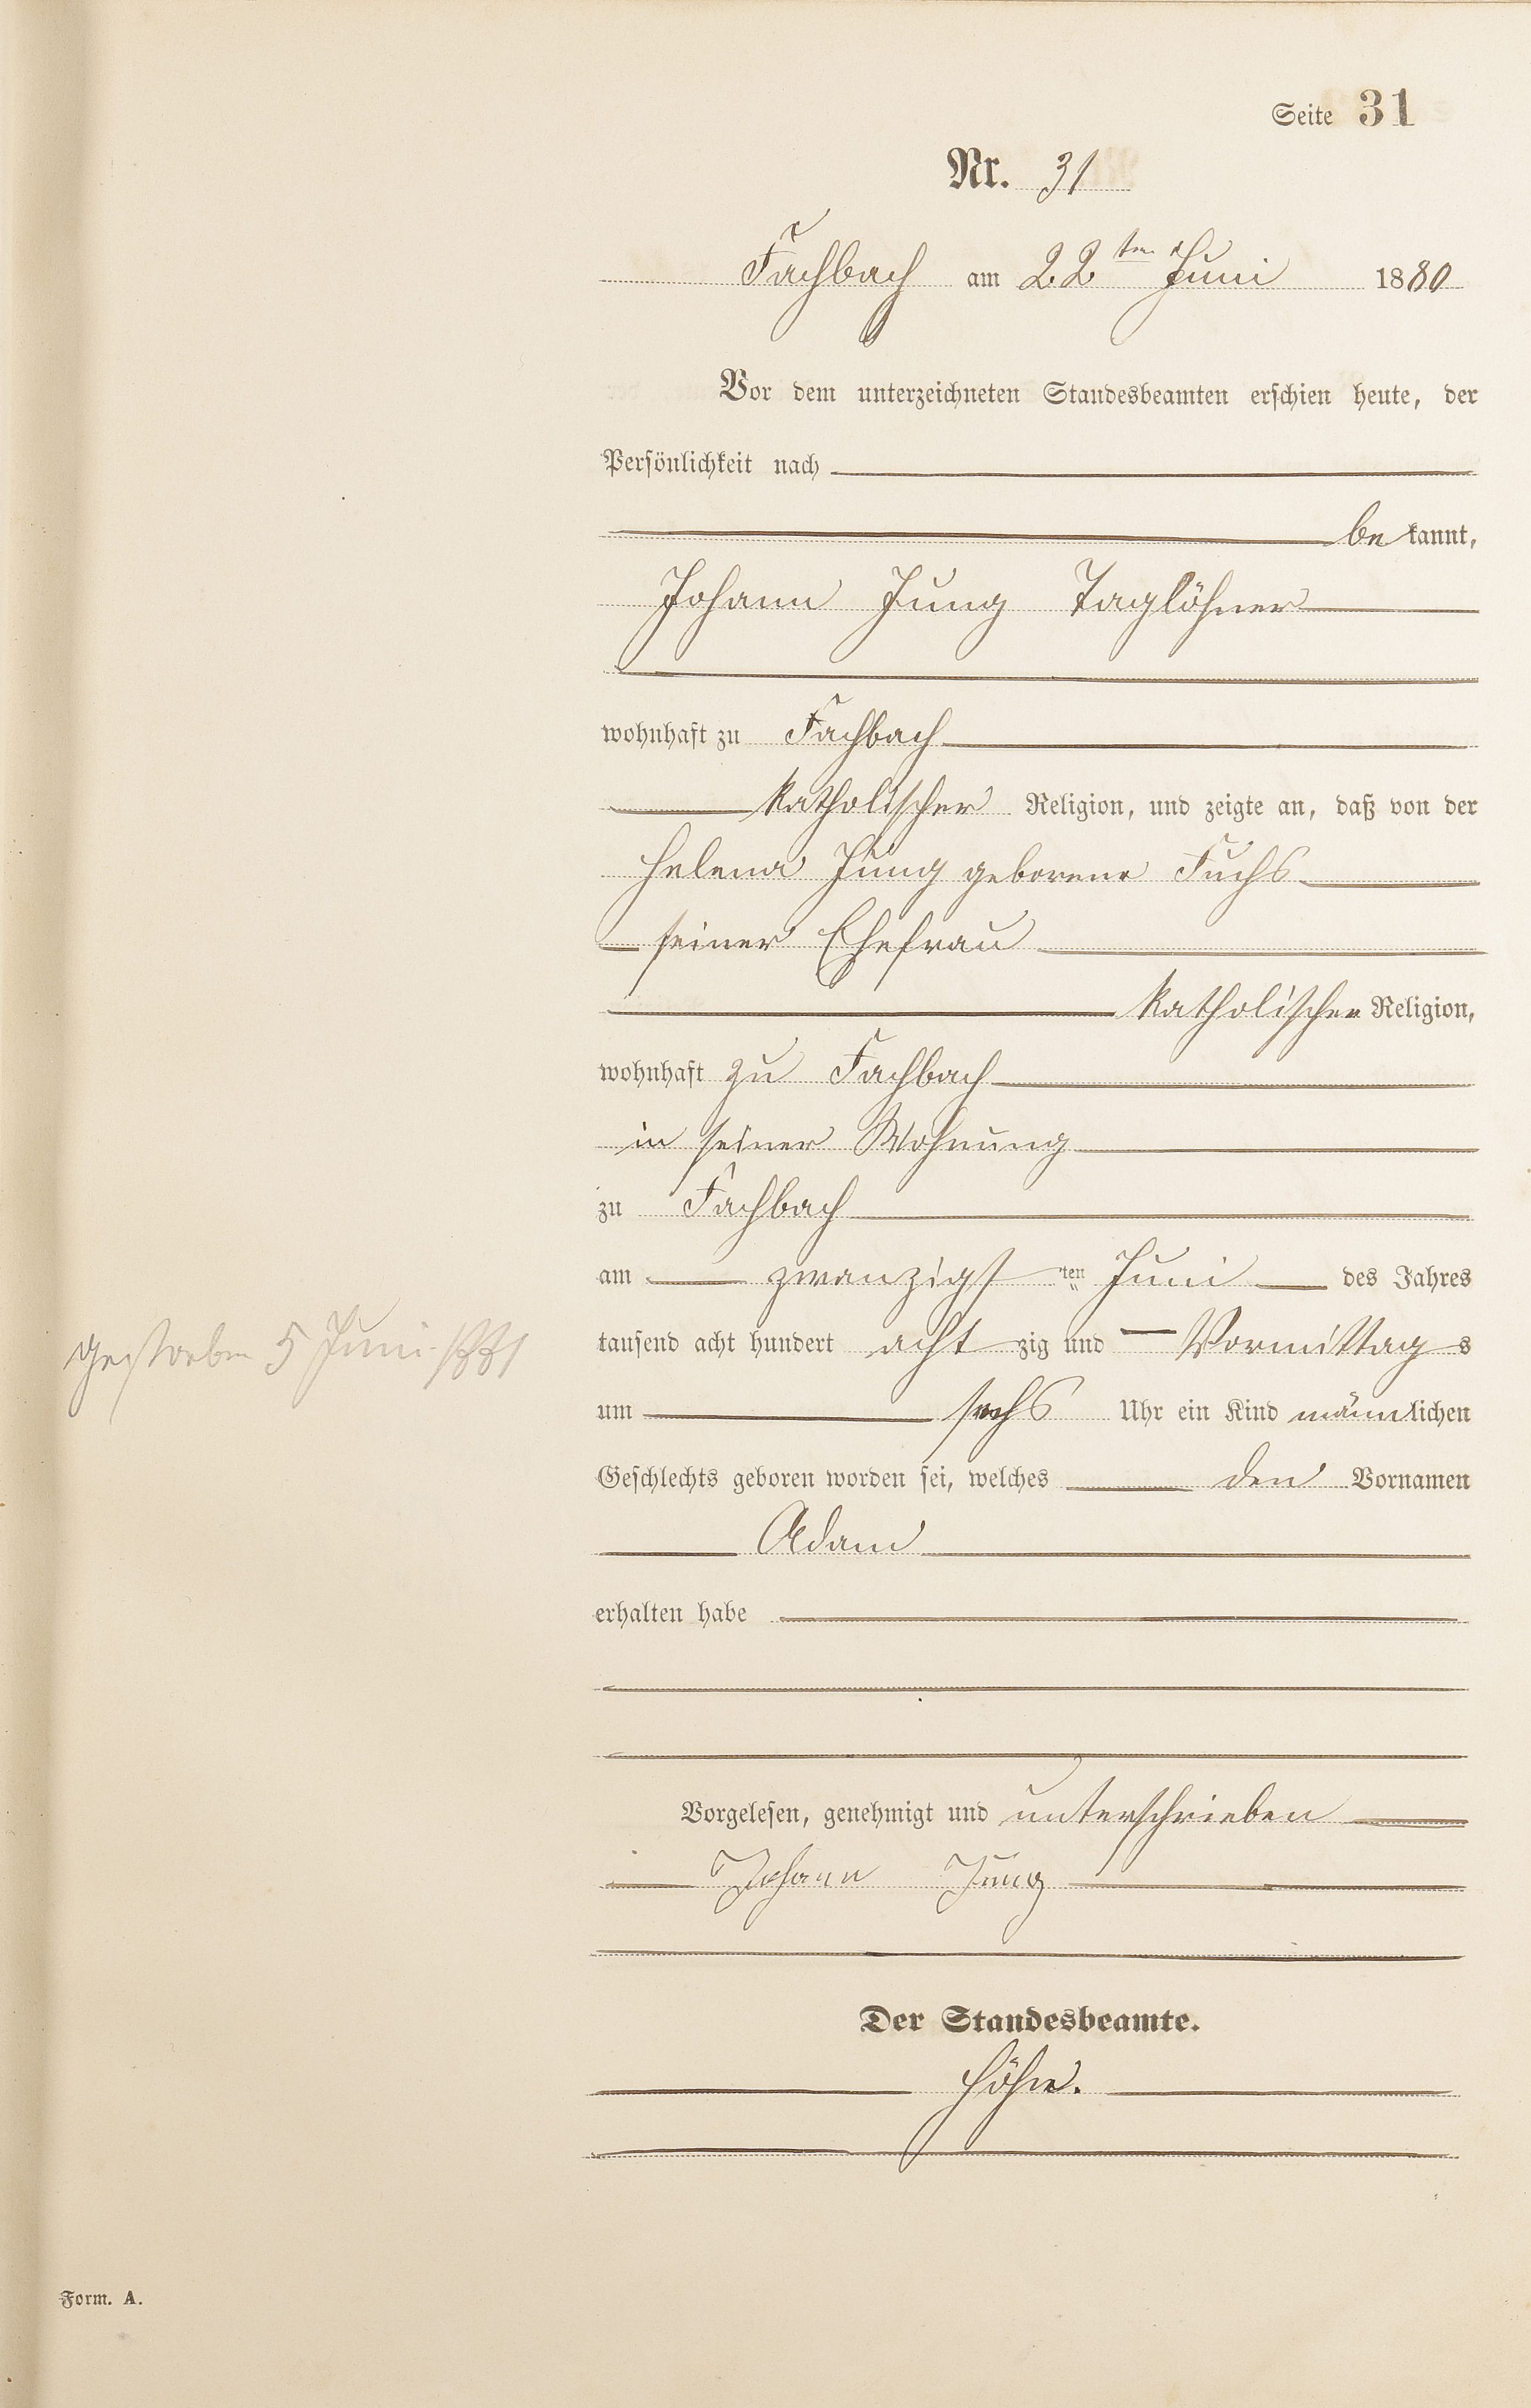 Seite 31
Nr. 31
Fachbach am 22ten Juni 1880
Vor dem unterzeichneten Standesbeamten erschien heute, der
Persönlichkeit nach
bekannt,
Johann Jung Taglöhner
wohnhaft zu Fachbach
katholischer Religion, und zeigte an, daß von der
Helena Jung geborene Fuchs
seiner Ehefrau
katholischer Religion,
wohnhaft zu Fachbach
in seiner Wohnung
zu Fachbach
am zwanzigsten Juni des Jahres
tausend acht hundert achtzig und Vormittags
um sechs Uhr ein Kind männlichen
Geschlechts geboren worden sei, welches den Vornamen
Adam
erhalten habe
Vorgelesen, genehmigt und unterschrieben
Johann Jung
Der Standesbeamte.
Höhn.
gestorben 5 Juni 1881
Form. A.